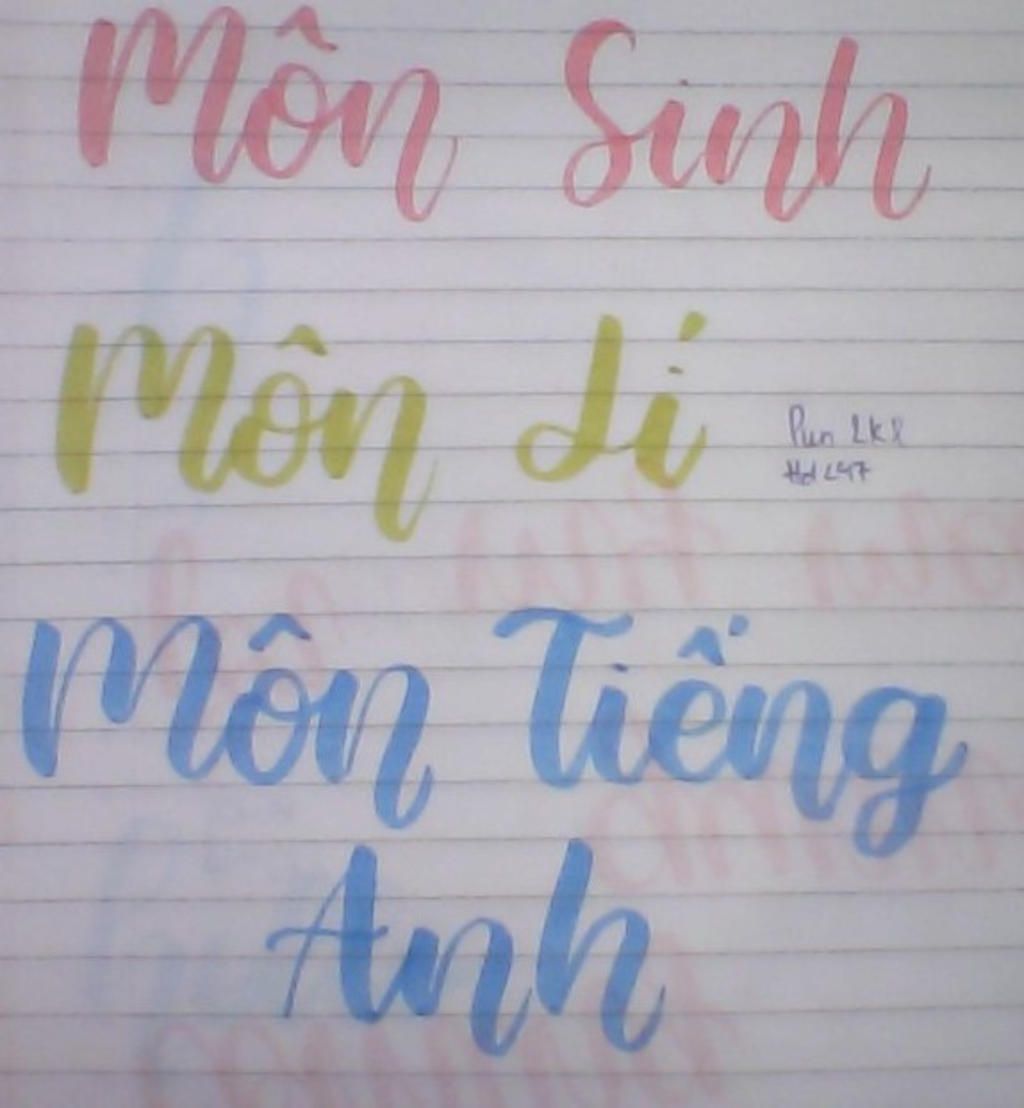 Môn Sinh
Môn Lí
Pun 2k8
Môn Tiếng
Anh